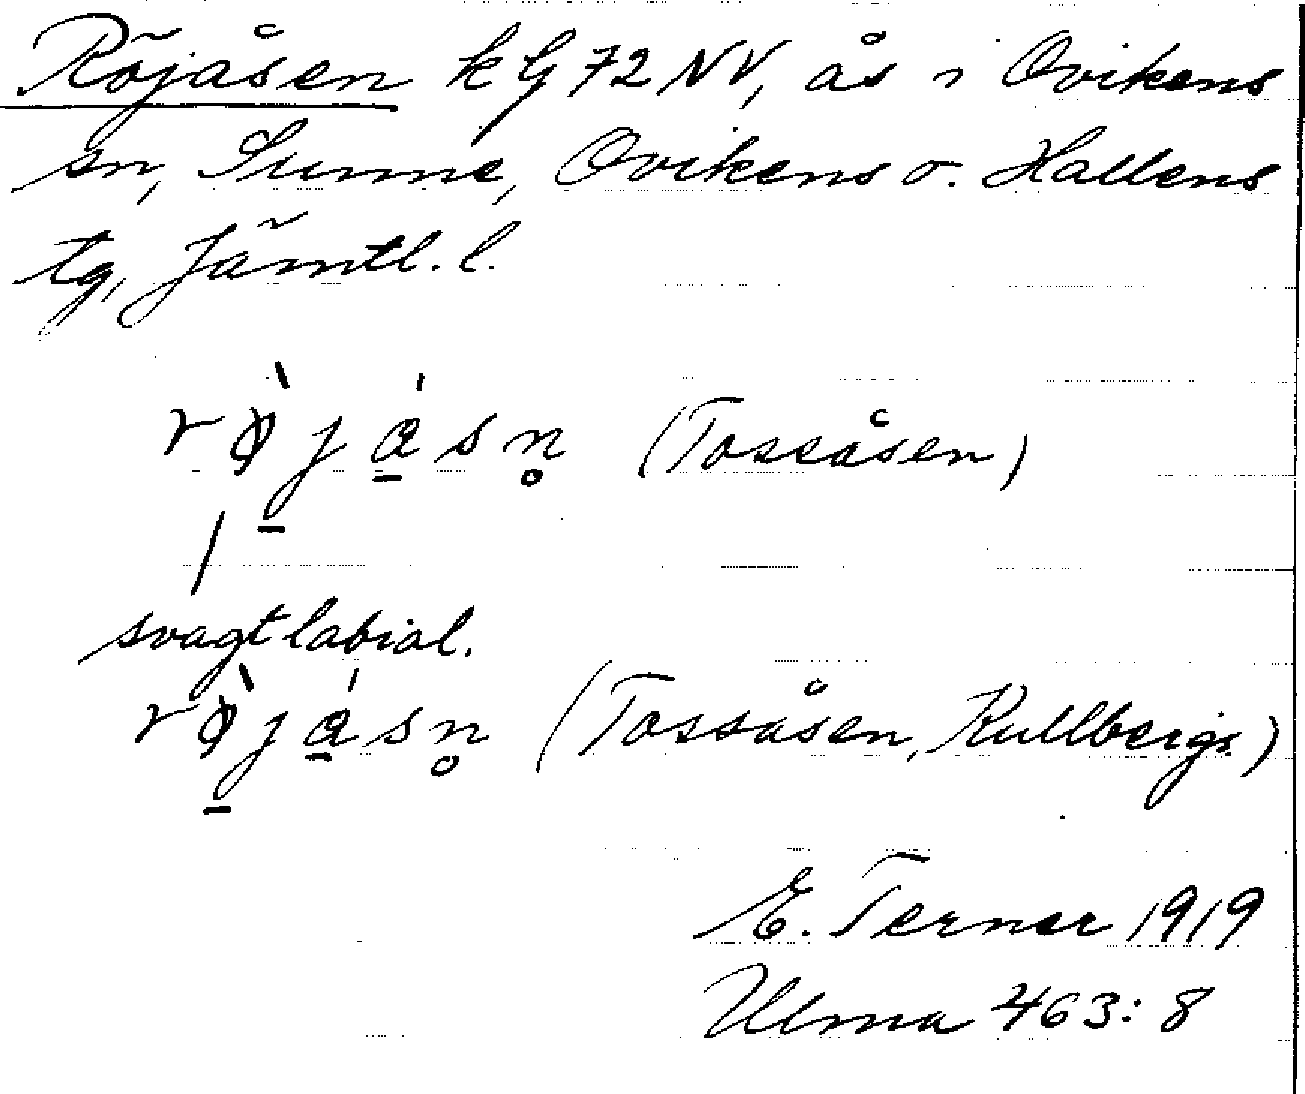 Röjåsen kG72NV, ås i Ovikens
sn, Sunne, Ovikens o. Hallens
tg, Jämtl. l.
rø̀jásn̥ (Tossåsen)
svagt labial.
rø̀jásn̥ (Tossåsen, Kullbergs.)
E. Terner 1919
Ulma 463:8